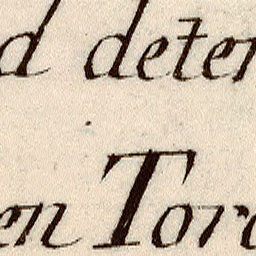 d deter
en Tor